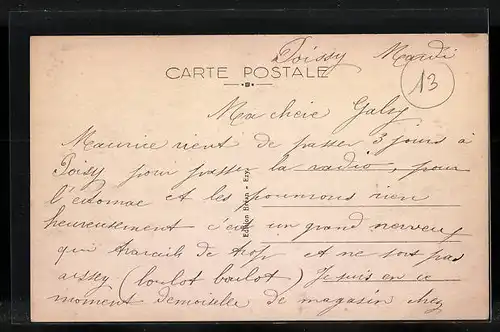 Poissy Mardi
CARTE POSTALE
13
Ma cheie Gaby
Maurice vient de passer 3 jours à
Poisy pour passer la radio, pour
l'estomac et les poumons rien
heureusement c'est un grand nerveux
qui travaille de trop et ne sort pas
assez (boulot boulot) Je suis en ce
moment demoiselle de magasin chez
Edition Bréan - Ezy